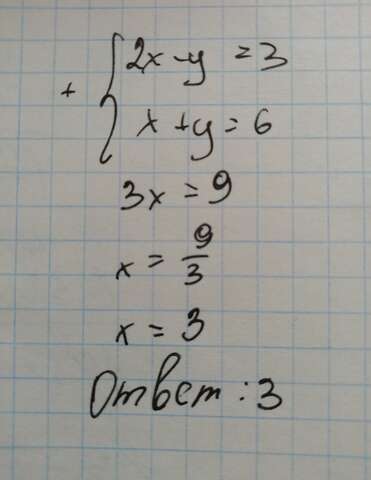 2x - y = 3
+ { x + y = 6
3x = 9
x = 9/3
x = 3
Ответ: 3